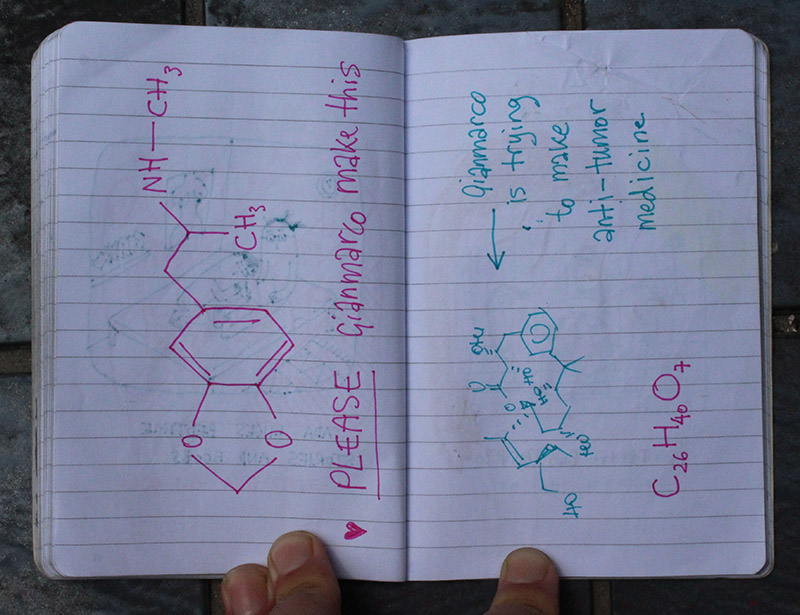 NH — CH3
CH3
O
O
♥ PLEASE Gianmarco make this
← Gianmarco
is trying
to make
anti-tumor
medicine
O
HO
HO
O
HO
C26H40O7